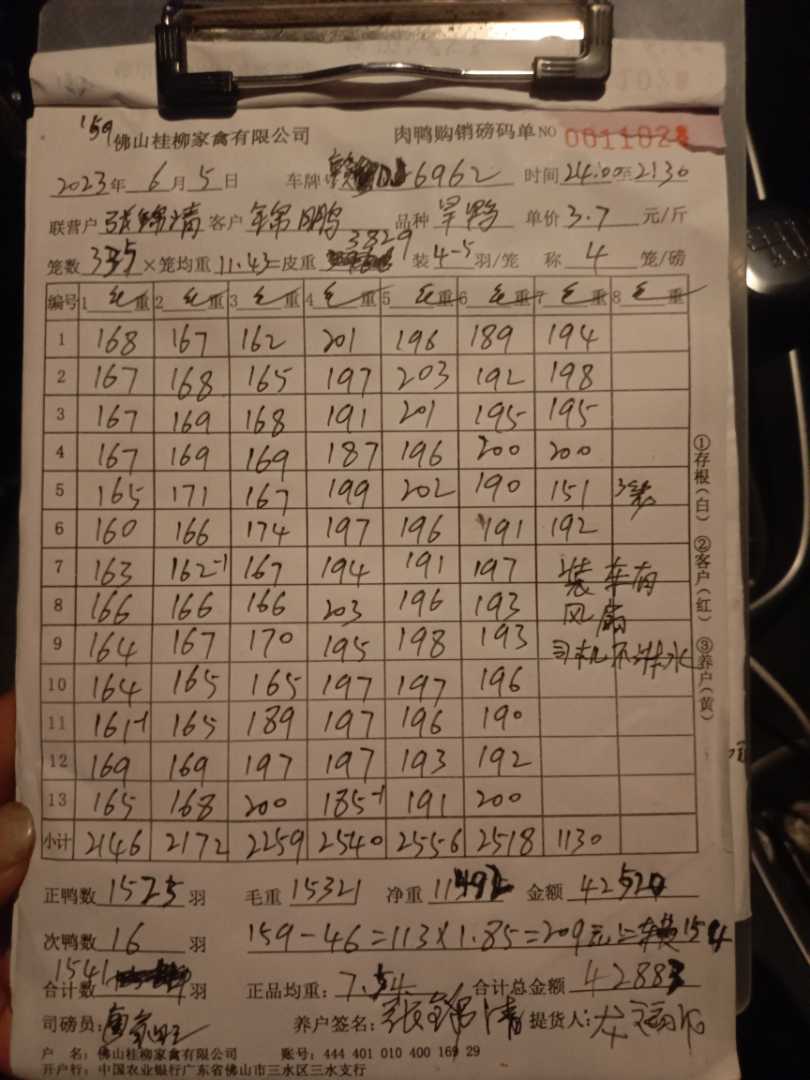 159 佛山桂柳家禽有限公司 肉鸭购销磅码单 NO 0011028
2023年 6月 5日 车牌 6962 时间 24:00至2:30
联营户 张锦清 客户 锦鹏 品种 旱鸭 单价 3.7 元/斤
笼数 335 ×笼均重 11.43 =皮重 3829 装 4-5 羽/笼 称 4 笼/磅
编号 1 毛重 2 毛重 3 毛重 4 毛重 5 毛重 6 毛重 7 毛重 8 毛重
1 168 167 162 201 196 189 194
2 167 168 165 197 203 192 198
3 167 169 168 191 201 195 195
4 167 169 169 187 196 200 200
5 165 171 167 199 202 190 151 3笼
6 160 166 174 197 196 191 192
7 163 162-1 167 194 191 197 装车有
8 166 166 166 203 196 193 风扇
9 164 167 170 195 198 193 司机不淋水
10 164 165 165 197 197 196
11 161-1 165 189 197 196 190
12 169 169 197 197 193 192
13 165 168 200 185-1 191 200
小计 2146 2172 2259 2540 2556 2518 1130
①存根(白) ②客户(红) ③养户(黄)
正鸭数 1525 羽 毛重 15321 净重 11492 金额 42520
次鸭数 16 羽 159-46=113×1.85=209元
1541
合计数 羽 正品均重: 7.54 合计总金额 42883
司磅员: 养户签名: 张锦清 提货人:
户 名: 佛山桂柳家禽有限公司 账号: 444 401 010 400 169 29
开户行: 中国农业银行广东省佛山市三水区三水支行